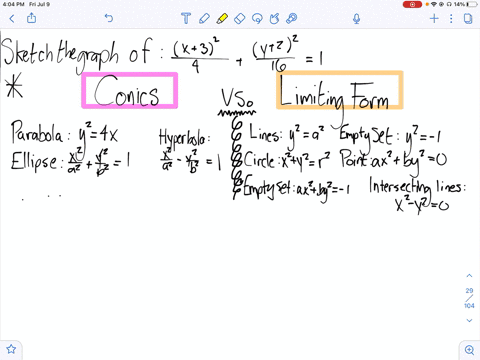 4:04 PM Fri Jul 9
14%
Sketch the graph of : (x+3)²/4 + (y+2)²/16 = 1
* Conics vs. Limiting Form
Parabola: y²=4x
Ellipse: x²/a² + y²/b² = 1
Hyperbola:
x²/a² - y²/b² = 1
Lines: y²=a² Empty Set: y²=-1
Circle: x²+y²=r² Point: ax²+by²=0
Empty Set: ax²+by²=-1 Intersecting lines:
x²-y²=0
29
104